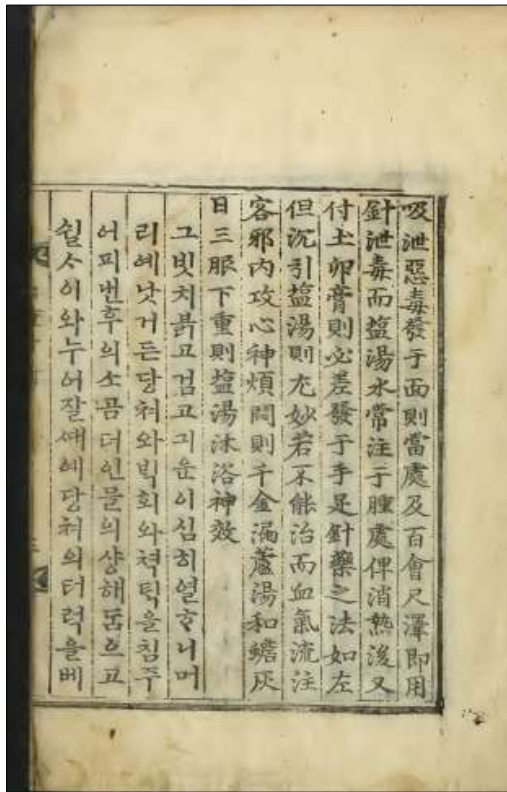 吸泄惡毒發于面則當處及百會尺澤即用
針泄毒而塩湯水常注于腫處俾消熱後又
付土卵膏則必差發于手足針藥之法如左
但沉引塩湯則尤妙若不能治而血氣流注
客邪内攻心神煩悶則千金漏蘆湯和蟾灰
日三服下重則塩湯沐浴神效
그빗치붉고검고긔운이심히열ᄒᆞ니머
리예낫거든당쳐와ᄇᆡᆨ회와쳑ᄐᆡᆨ을침주
어피번후의소곰더인믈의샹해ᄃᆞᆷ으고
쉴ᄉᆞ이와누어잘ᄣᅢ예당쳐의터럭을베